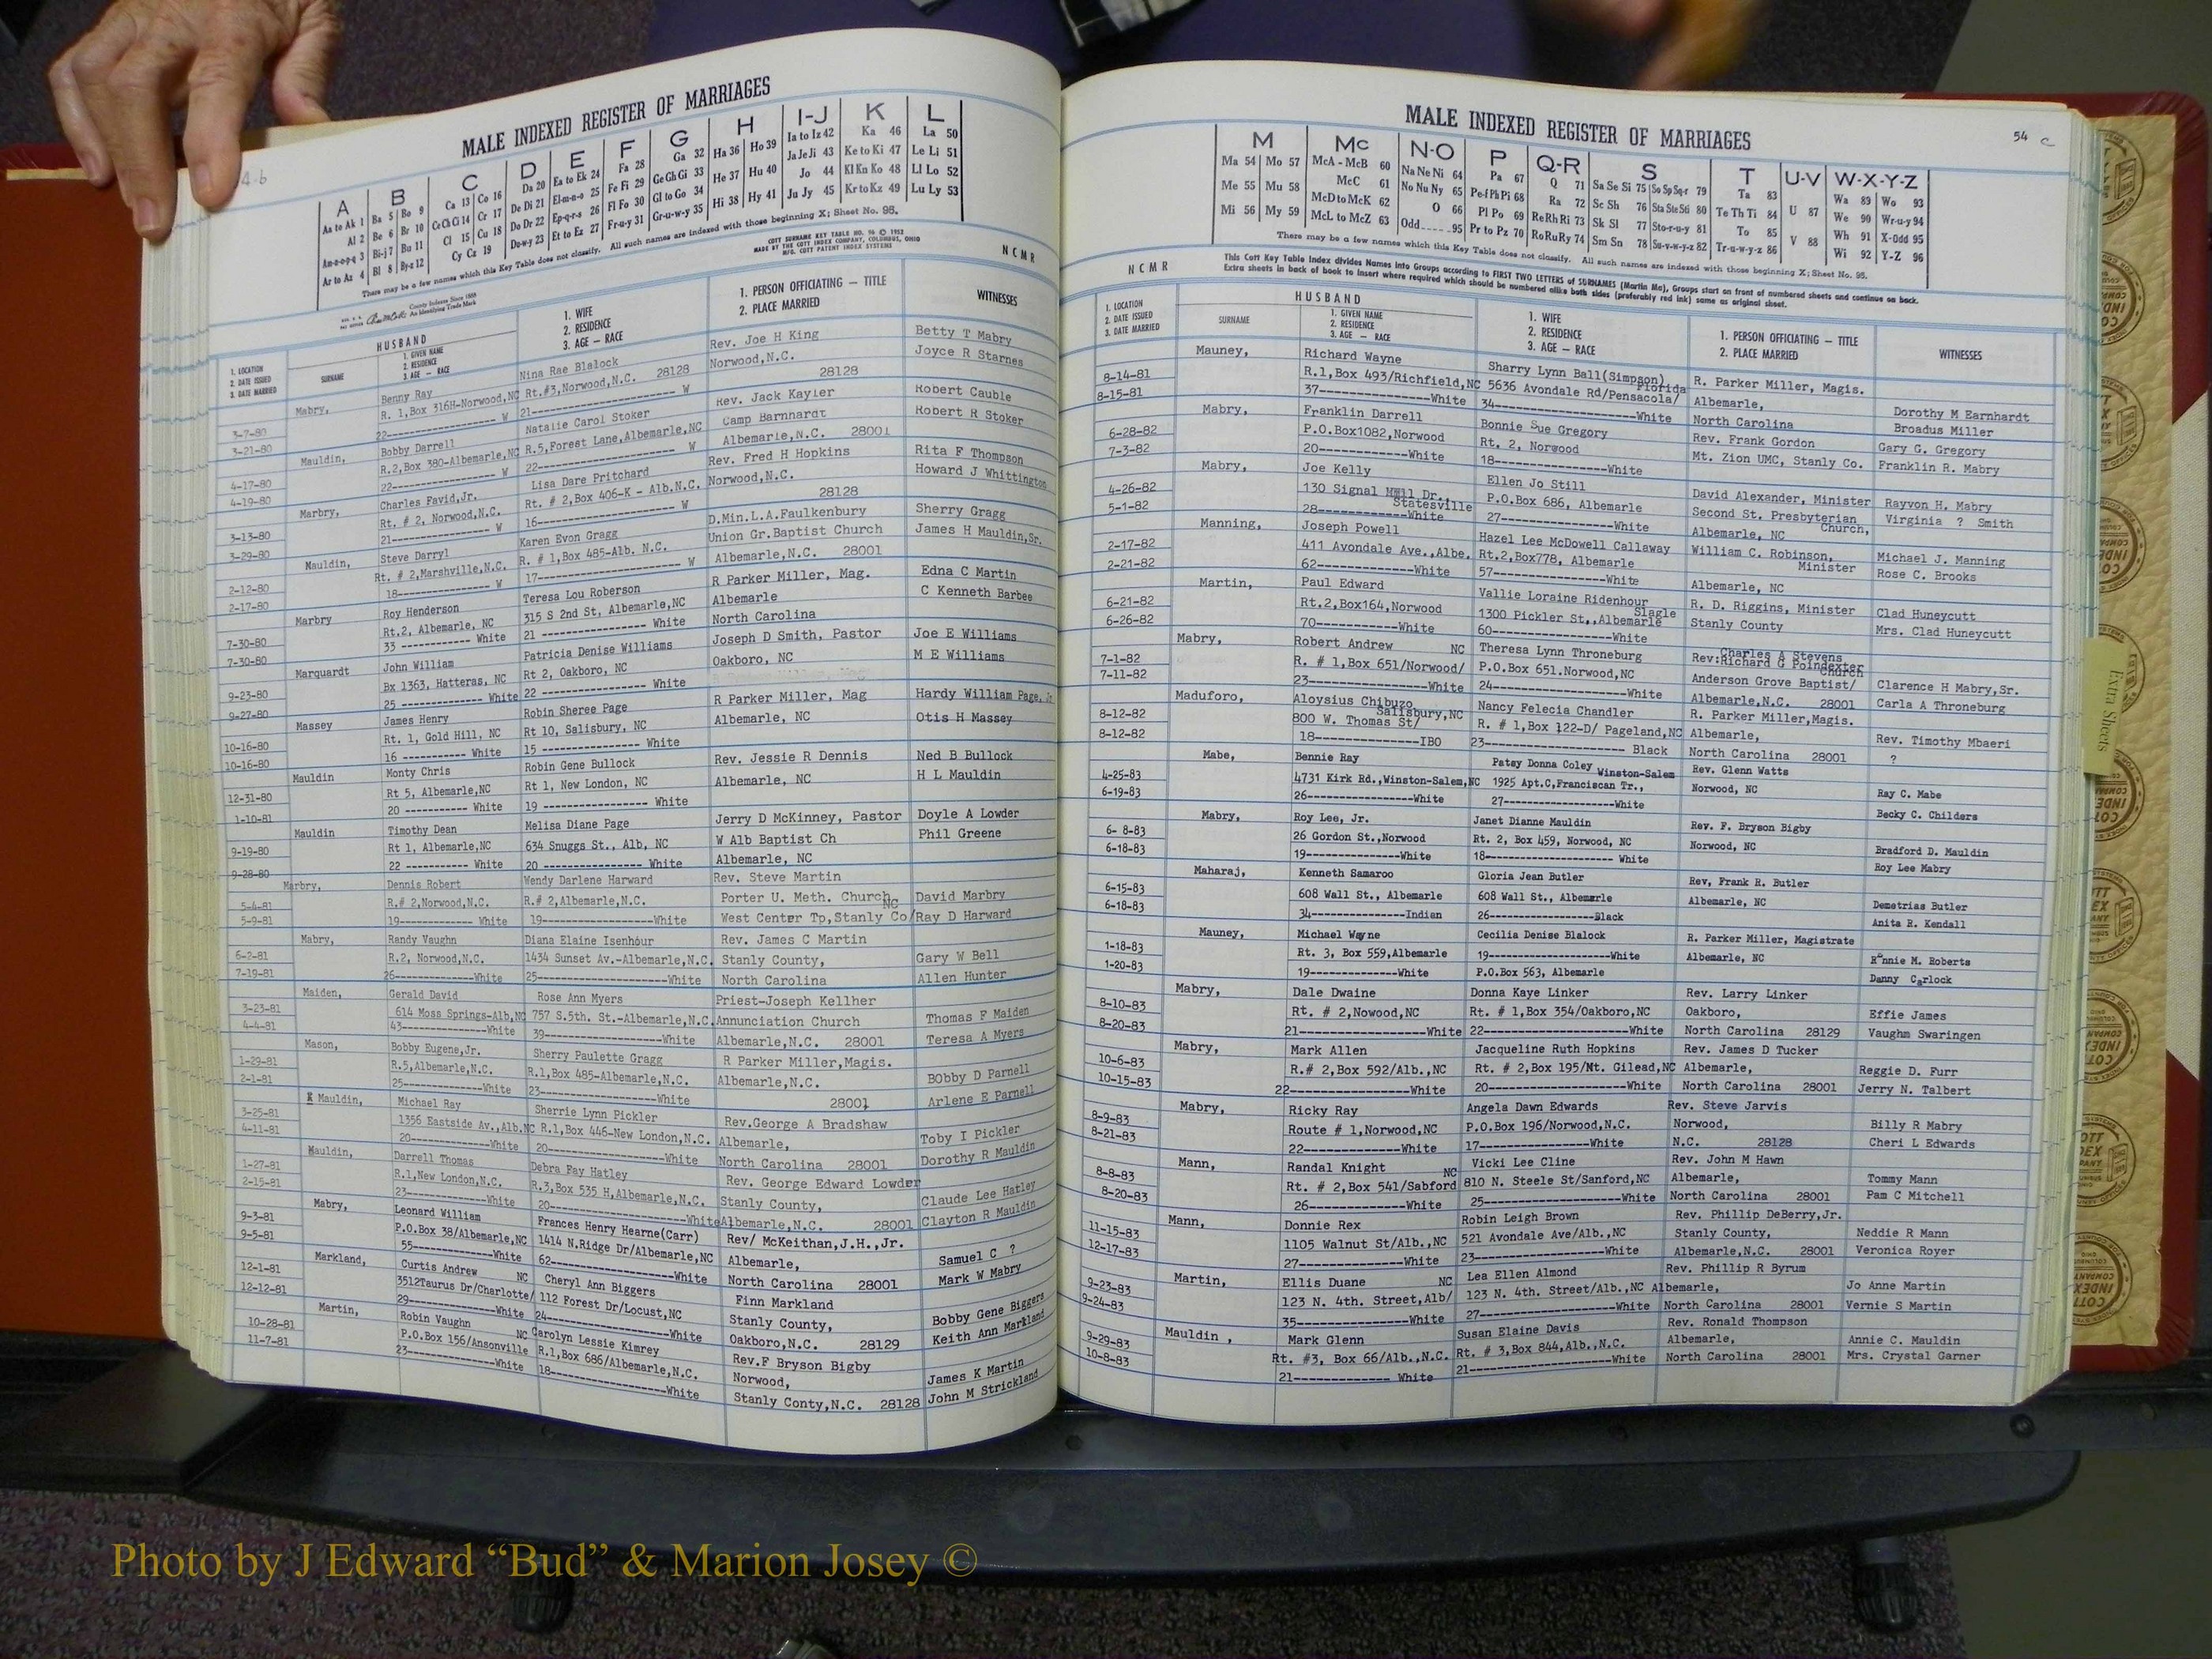 4-b
MALE INDEXED REGISTER OF MARRIAGES
A B C D E F G H I-J K L
Aa to Ak 1 Ba 5 Bo 9 Ca 13 Co 16 Da 20 Ea to Ek 24 Fa 28 Ga 32 Ha 36 Ho 39 Ia to Iz 42 Ka 46 La 50
Al 2 Be 6 Br 10 Ce Ch Ci 14 Cr 17 De Di 21 El-m-n-o 25 Fe Fi 29 Ge Gh Gi 33 He 37 Hu 40 Ja Je Ji 43 Ke to Ki 47 Le Li 51
Am-n-o-p-q 3 Bi-j 7 Bu 11 Cl 15 Cu 18 Do Dr 22 Ep-q-r-s 26 Fl Fo 30 Gl to Go 34 Hi 38 Hy 41 Jo 44 Kl Kn Ko 48 Ll Lo 52
Ar to Az 4 Bl 8 By-z 12 Cy Cz 19 Du-w-y 23 Et to Ez 27 Fr-u-y 31 Gr-u-w-y 35 Ju Jy 45 Kr to Kz 49 Lu Ly 53
There may be a few names which this Key Table does not classify. All such names are indexed with those beginning X; Sheet No. 95.
County Indexes Since 1888
An Identifying Trade Mark
COTT SURNAME KEY TABLE NO. 96 © 1952
MADE BY THE COTT INDEX COMPANY, COLUMBUS, OHIO
MFG. COTT PATENT INDEX SYSTEMS
N C M R
1. LOCATION
2. DATE ISSUED
3. DATE MARRIED
HUSBAND
SURNAME
1. GIVEN NAME
2. RESIDENCE
3. AGE — RACE
1. WIFE
2. RESIDENCE
3. AGE — RACE
1. PERSON OFFICIATING — TITLE
2. PLACE MARRIED
WITNESSES
Mabry, Benny Ray Nina Rae Blalock Rev. Joe H King Betty T Mabry
3-7-80 R. 1,Box 316H-Norwood,NC Rt.#3,Norwood,N.C. 28128 Norwood,N.C. Joyce R Starnes
3-21-80 22---------- W 21---------- W 28128
Mauldin, Bobby Darrell Natalie Carol Stoker Rev. Jack Kayler Robert Cauble
4-17-80 R.2,Box 380-Albemarle,NC R.5,Forest Lane,Albemarle,NC Camp Barnhardt Robert R Stoker
4-19-80 22---------- W 22---------- W Albemarle,N.C. 28001
Marbry, Charles Favid,Jr. Lisa Dare Pritchard Rev. Fred H Hopkins Rita F Thompson
3-13-80 Rt. # 2, Norwood,N.C. Rt. # 2,Box 406-K - Alb.N.C. Norwood,N.C. Howard J Whittington
3-29-80 21---------- W 16---------- W 28128
Mauldin, Steve Darryl Karen Evon Gragg D.Min.L.A.Faulkenbury Sherry Gragg
2-12-80 Rt. # 2,Marshville,N.C. R. # 1,Box 485-Alb. N.C. Union Gr.Baptist Church James H Mauldin,Sr.
2-17-80 18---------- W 17---------- W Albemarle,N.C. 28001
Marbry Roy Henderson Teresa Lou Roberson R Parker Miller, Mag. Edna C Martin
7-30-80 Rt.2, Albemarle, NC 315 S 2nd St, Albemarle,NC Albemarle C Kenneth Barbee
7-30-80 33 ---------- White 21 ---------- White North Carolina
Marquardt John William Patricia Denise Williams Joseph D Smith, Pastor Joe E Williams
9-23-80 Bx 1363, Hatteras, NC Rt 2, Oakboro, NC Oakboro, NC M E Williams
9-27-80 25 ---------- White 22 ---------- White
Massey James Henry Robin Sheree Page R Parker Miller, Mag Hardy William Page, Jr.
10-16-80 Rt. 1, Gold Hill, NC Rt 10, Salisbury, NC Albemarle, NC Otis H Massey
10-16-80 16 ---------- White 15 ---------- White
Mauldin Monty Chris Robin Gene Bullock Rev. Jessie R Dennis Ned B Bullock
12-31-80 Rt 5, Albemarle,NC Rt 1, New London, NC Albemarle, NC H L Mauldin
1-10-81 20 ---------- White 19 ---------- White
Mauldin Timothy Dean Melisa Diane Page Jerry D McKinney, Pastor Doyle A Lowder
9-19-80 Rt 1, Albemarle,NC 634 Snuggs St., Alb, NC W Alb Baptist Ch Phil Greene
9-28-80 22 ---------- White 20 ---------- White Albemarle, NC
Marbry, Dennis Robert Wendy Darlene Harward Rev. Steve Martin
5-4-81 R.# 2,Norwood,N.C. R.# 2,Albemarle,N.C. Porter U. Meth. Church David Marbry
5-9-81 19---------- White 19----------White West Center Tp,Stanly Co/NC Ray D Harward
Mabry, Randy Vaughn Diana Elaine Isenhour Rev. James C Martin
6-2-81 R.2, Norwood,N.C. 1434 Sunset Av.-Albemarle,N.C. Stanly County, Gary W Bell
7-19-81 26----------White 25----------White North Carolina Allen Hunter
Maiden, Gerald David Rose Ann Myers Priest-Joseph Kellher
3-23-81 614 Moss Springs-Alb,NC 757 S.5th. St.-Albemarle,N.C. Annunciation Church Thomas F Maiden
4-4-81 43----------White 39----------White Albemarle,N.C. 28001 Teresa A Myers
Mason, Bobby Eugene,Jr. Sherry Paulette Gragg R Parker Miller,Magis.
1-29-81 R.5,Albemarle,N.C. R.1,Box 485-Albemarle,N.C. Albemarle,N.C. BObby D Parnell
2-1-81 25----------White 23----------White 28001 Arlene E Parnell
Mauldin, Michael Ray Sherrie Lynn Pickler Rev.George A Bradshaw
3-25-81 1356 Eastside Av.,Alb.NC R.1,Box 446-New London,N.C. Albemarle, Toby I Pickler
4-11-81 20----------White 20----------White North Carolina 28001 Dorothy R Mauldin
Mauldin, Darrell Thomas Debra Fay Hatley Rev. George Edward Lowder
1-27-81 R.1,New London,N.C. R.3,Box 535 H,Albemarle,N.C. Stanly County, Claude Lee Hatley
2-15-81 23----------White 20----------White Albemarle,N.C. 28001 Clayton R Mauldin
Mabry, Leonard William Frances Henry Hearne(Carr) Rev/ McKeithan,J.H.,Jr.
9-3-81 P.O.Box 38/Albemarle,NC 1414 N.Ridge Dr/Albemarle,NC Albemarle, Samuel C ?
9-5-81 55----------White 62----------White North Carolina 28001 Mark W Mabry
Markland, Curtis Andrew Cheryl Ann Biggers Finn Markland
12-1-81 3512Taurus Dr/Charlotte/NC 112 Forest Dr/Locust,NC Stanly County, Bobby Gene Biggers
12-12-81 29----------White 24----------White Oakboro,N.C. 28129 Keith Ann Markland
Martin, Robin Vaughn Carolyn Lessie Kimrey Rev.F Bryson Bigby
10-28-81 P.O.Box 156/Ansonville NC R.1,Box 686/Albemarle,N.C. Norwood, James K Martin
11-7-81 23----------White 18----------White Stanly Conty,N.C. 28128 John M Strickland
54 c
MALE INDEXED REGISTER OF MARRIAGES
M Mc N-O P Q-R S T U-V W-X-Y-Z
Ma 54 Mo 57 McA - McB 60 Na Ne Ni 64 Pa 67 Q 71 Sa Se Si 75 So Sp Sq-r 79 Ta 83 U 87 Wa 89 Wo 93
Me 55 Mu 58 McC 61 No Nu Ny 65 Pe-f Ph Pi 68 Ra 72 Sc Sh 76 Sta Ste Sti 80 Te Th Ti 84 V 88 We 90 Wr-u-y 94
Mi 56 My 59 McD to McK 62 O 66 Pl Po 69 Re Rh Ri 73 Sk Sl 77 Sto-r-u-y 81 To 85 Wh 91 X-Odd 95
McL to McZ 63 Odd 95 Pr to Pz 70 Ro Ru Ry 74 Sm Sn 78 Su-v-w-y-z 82 Tr-u-w-y-z 86 Wi 92 Y-Z 96
There may be a few names which this Key Table does not classify. All such names are indexed with those beginning X; Sheet No. 95.
N C M R
This Cott Key Table Index divides Names into Groups according to FIRST TWO LETTERS of SURNAMES (Martin Ma), Groups start on front of numbered sheets and continue on back.
Extra sheets in back of book to insert where required which should be numbered alike both sides (preferably red ink) same as original sheet.
1. LOCATION
2. DATE ISSUED
3. DATE MARRIED
HUSBAND
SURNAME
1. GIVEN NAME
2. RESIDENCE
3. AGE — RACE
1. WIFE
2. RESIDENCE
3. AGE — RACE
1. PERSON OFFICIATING — TITLE
2. PLACE MARRIED
WITNESSES
Mauney, Richard Wayne Sharry Lynn Ball(Simpson) R. Parker Miller, Magis.
8-14-81 R.1,Box 493/Richfield,NC 5636 Avondale Rd/Pensacola/Florida Albemarle, Dorothy M Earnhardt
8-15-81 37----------White 34----------White North Carolina Broadus Miller
Mabry, Franklin Darrell Bonnie Sue Gregory Rev. Frank Gordon Gary G. Gregory
6-28-82 P.O.Box1082,Norwood Rt. 2, Norwood Mt. Zion UMC, Stanly Co. Franklin R. Mabry
7-3-82 20----------White 18----------White
Mabry, Joe Kelly Ellen Jo Still David Alexander, Minister Rayvon H. Mabry
4-26-82 130 Signal Mill Dr., Statesville P.O.Box 686, Albemarle Second St. Presbyterian Church, Virginia ? Smith
5-1-82 28----------White 27----------White Albemarle, NC
Manning, Joseph Powell Hazel Lee McDowell Callaway William C. Robinson, Minister Michael J. Manning
2-17-82 411 Avondale Ave.,Albe. Rt.2,Box778, Albemarle Albemarle, NC Rose C. Brooks
2-21-82 62----------White 57----------White
Martin, Paul Edward Vallie Loraine Ridenhour Slagle R. D. Riggins, Minister Clad Huneycutt
6-21-82 Rt.2,Box164,Norwood 1300 Pickler St,,Albemarle Stanly County Mrs. Clad Huneycutt
6-26-82 70----------White 60----------White
Mabry, Robert Andrew Theresa Lynn Throneburg Charles A Stevens
Rev:Richard G Poindexter
7-1-82 R. # 1,Box 651/Norwood/NC P.O.Box 651.Norwood,NC Anderson Grove Baptist/Church Clarence H Mabry,Sr.
7-11-82 23----------White 24----------White Albemarle,N.C. 28001 Carla A Throneburg
Maduforo, Aloysius Chibuzo Nancy Felecia Chandler R. Parker Miller,Magis.
8-12-82 800 W. Thomas St/Salisbury,NC R. # 1,Box 122-D/ Pageland,NC Albemarle, Rev. Timothy Mbaeri
8-12-82 18----------IBO 23---------- Black North Carolina 28001 ?
Mabe, Bennie Ray Patsy Donna Coley Rev. Glenn Watts
4-25-83 4731 Kirk Rd.,Winston-Salem,NC 1925 Apt.C,Franciscan Tr., Winston-Salem Norwood, NC Ray C. Mabe
6-19-83 26----------White 27----------White Becky C. Childers
Mabry, Roy Lee, Jr. Janet Dianne Mauldin Rev. F. Bryson Bigby
6- 8-83 26 Gordon St.,Norwood Rt. 2, Box 459, Norwood, NC Norwood, NC Bradford D. Mauldin
6-18-83 19----------White 18---------- White Roy Lee Mabry
Maharaj, Kenneth Samaroo Gloria Jean Butler Rev, Frank R. Butler
6-15-83 608 Wall St., Albemarle 608 Wall St., Albemarle Albemarle, NC Demetrias Butler
6-18-83 34----------Indian 26----------Black Anita R. Kendall
Mauney, Michael Wayne Cecilia Denise Blalock R. Parker Miller, Magistrate
1-18-83 Rt. 3, Box 559,Albemarle 19----------White Albemarle, NC Ronnie M. Roberts
1-20-83 19----------White P.O.Box 563, Albemarle Danny Carlock
Mabry, Dale Dwaine Donna Kaye Linker Rev. Larry Linker
8-10-83 Rt. # 2,Nowood,NC Rt. # 1,Box 354/Oakboro,NC Oakboro, Effie James
8-20-83 21----------White 22----------White North Carolina 28129 Vaughm Swaringen
Mabry, Mark Allen Jacqueline Ruth Hopkins Rev. James D Tucker
10-6-83 R.# 2,Box 592/Alb.,NC Rt. # 2,Box 195/Mt. Gilead,NC Albemarle, Reggie D. Furr
10-15-83 22----------White 20----------White North Carolina 28001 Jerry N. Talbert
Mabry, Ricky Ray Angela Dawn Edwards Rev. Steve Jarvis
8-9-83 Route # 1,Norwood,NC P.O.Box 196/Norwood,N.C. Norwood, Billy R Mabry
8-21-83 22----------White 17----------White N.C. 28128 Cheri L Edwards
Mann, Randal Knight Vicki Lee Cline Rev. John M Hawn
8-8-83 Rt. # 2,Box 541/Sabford NC 810 N. Steele St/Sanford,NC Albemarle, Tommy Mann
8-20-83 26----------White 25----------White North Carolina 28001 Pam C Mitchell
Mann, Donnie Rex Robin Leigh Brown Rev. Phillip DeBerry,Jr.
11-15-83 1105 Walnut St/Alb.,NC 521 Avondale Ave/Alb.,NC Stanly County, Neddie R Mann
12-17-83 27----------White 23----------White Albemarle,N.C. 28001 Veronica Royer
Martin, Ellis Duane Lea Ellen Almond Rev. Phillip R Byrum
9-23-83 123 N. 4th. Street,Alb/NC 123 N. 4th. Street/Alb.,NC Albemarle, Jo Anne Martin
9-24-83 35----------White 27----------White North Carolina 28001 Vernie S Martin
Mauldin , Mark Glenn Susan Elaine Davis Rev. Ronald Thompson
9-29-83 Rt. #3, Box 66/Alb.,N.C. Rt. # 3,Box 844,Alb.,N.C. Albemarle, Annie C. Mauldin
10-8-83 21---------- White 21----------White North Carolina 28001 Mrs. Crystal Garner
Extra Sheets
Photo by J Edward “Bud” & Marion Josey ©